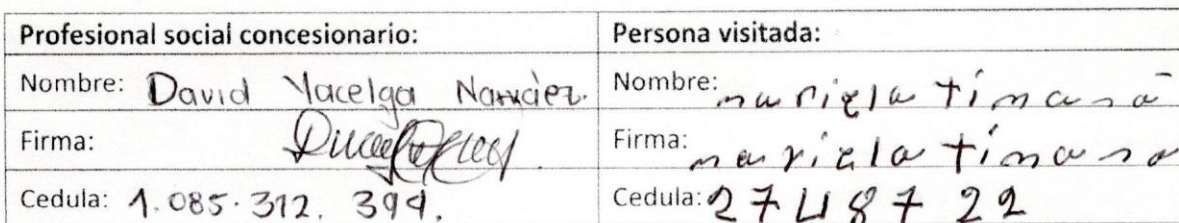 Profesional social concesionario: Persona visitada:
Nombre: David Yacelga Narváez. Nombre: mariela timaná
Firma: Firma: mariela timana
Cedula: 1.085.312.394. Cedula: 27487 22